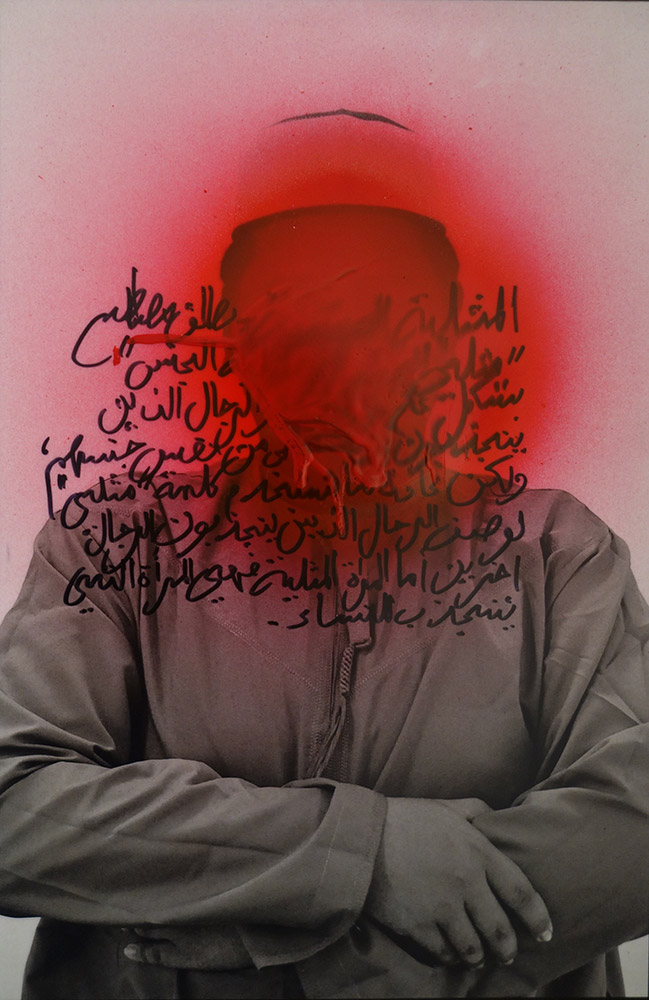 المثلية
"مثلي الجنس"
بشكل الرجال الذين
من نفس جنسهم،
ولكن عادة ما تستخدم كلمة "مثلي"
لوصف الرجال الذين ينجذبون لرجال
اخرين اما المرأة المثلية فهي المرأة التي
تنجذب للنساء..